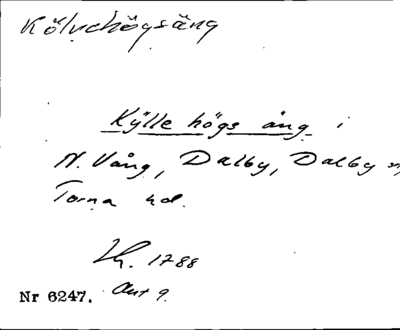 Kölnehögsäng
Kylle högs äng i
N. Vång, Dalby, Dalby sn,
Torna hd.
Lh. 1788
Akt 9.
Nr 6247.